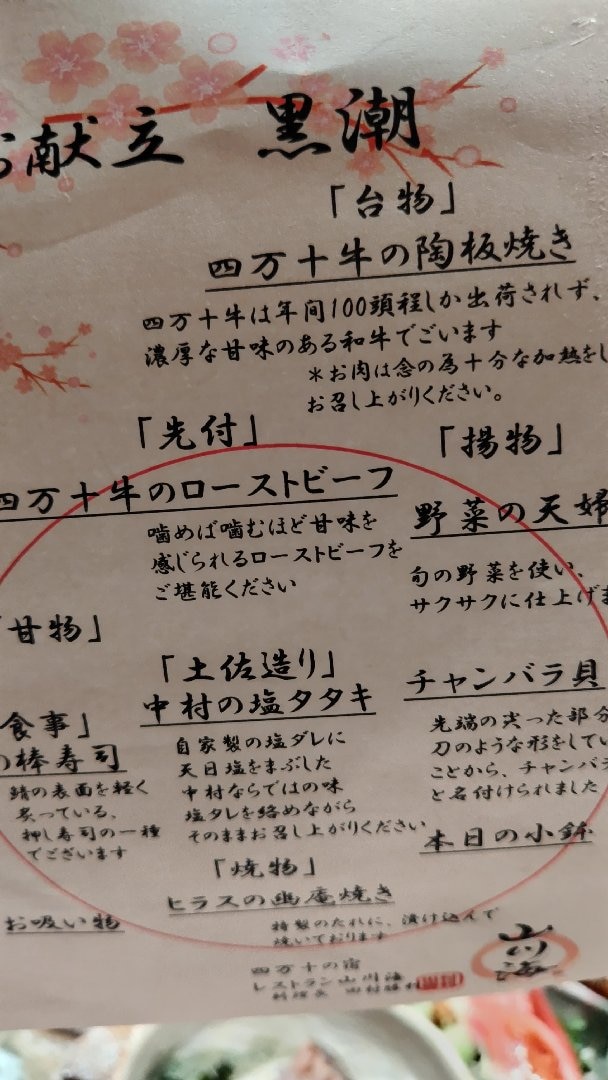 お献立　黒潮
「台物」
四万十牛の陶板焼き
四万十牛は年間100頭程しか出荷されず、
濃厚な甘味のある和牛でございます
＊お肉は念の為十分な加熱をし
お召し上がりください。
「先付」
四万十牛のローストビーフ
噛めば噛むほど甘味を
感じられるローストビーフを
ご堪能ください
「揚物」
野菜の天婦
旬の野菜を使い、
サクサクに仕上げま
「甘物」
「土佐造り」
中村の塩タタキ
自家製の塩ダレに
天日塩をまぶした
中村ならではの味
塩タレを絡めながら
そのままお召し上がりください
チャンバラ貝
先端の尖った部分
刀のような形をしてい
ことから、チャンバラ
と名付けられました
本日の小鉢
食事」
の棒寿司
鯖の表面を軽く
炙っている、
押し寿司の一種
でございます
お吸い物
「焼物」
ヒラスの幽庵焼き
特製のたれに、漬け込んで
焼いております
四万十の宿
レストラン山川海
山川海